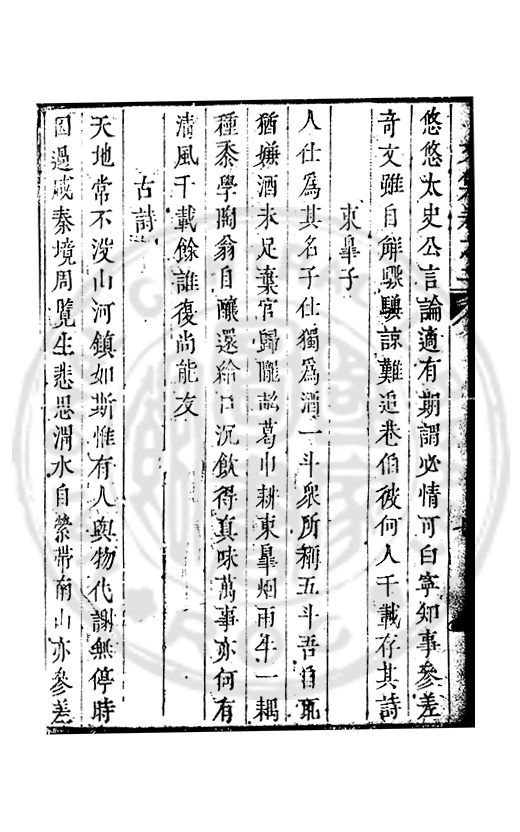 悠悠太史公言論適有期謂必情可白寧知事參差
奇文雖自解驟驥諒難追巷伯彼何人千載存其詩
東皐子
人仕爲其名子仕獨爲酒一斗衆所稱五斗吾自
猶嫌酒未足棄官歸隴畝葛巾耕東皐烟雨牛一耦
種黍學陶翁自釀還給口沉飲得真味萬事亦何有
清風千載餘誰復尚能友
古詩
天地常不沒山河鎮如斯惟有人與物代謝無停時
因過咸秦境周覽生悲思渭水自縈帶南山亦參差